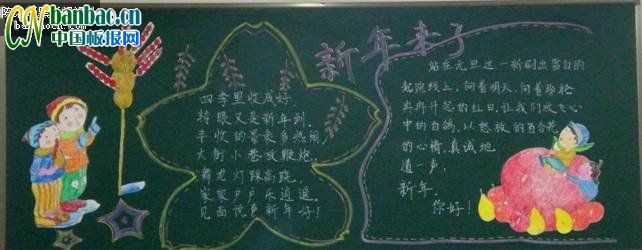 banbac.cn
中国板报网
新年来了
四季里收成好，
转眼又是新年到。
丰收的景象多热闹，
大街小巷放鞭炮。
舞龙灯踩高跷，
家家户户乐逍遥。
见面说声新年好！
站在元旦这一新
起跑线上，向着明天，向着那轮
冉冉升起的红日，让我们放飞心
中的白鸽，以怒放的百合花
的心情，真诚地
道一声：
新年，
你好！